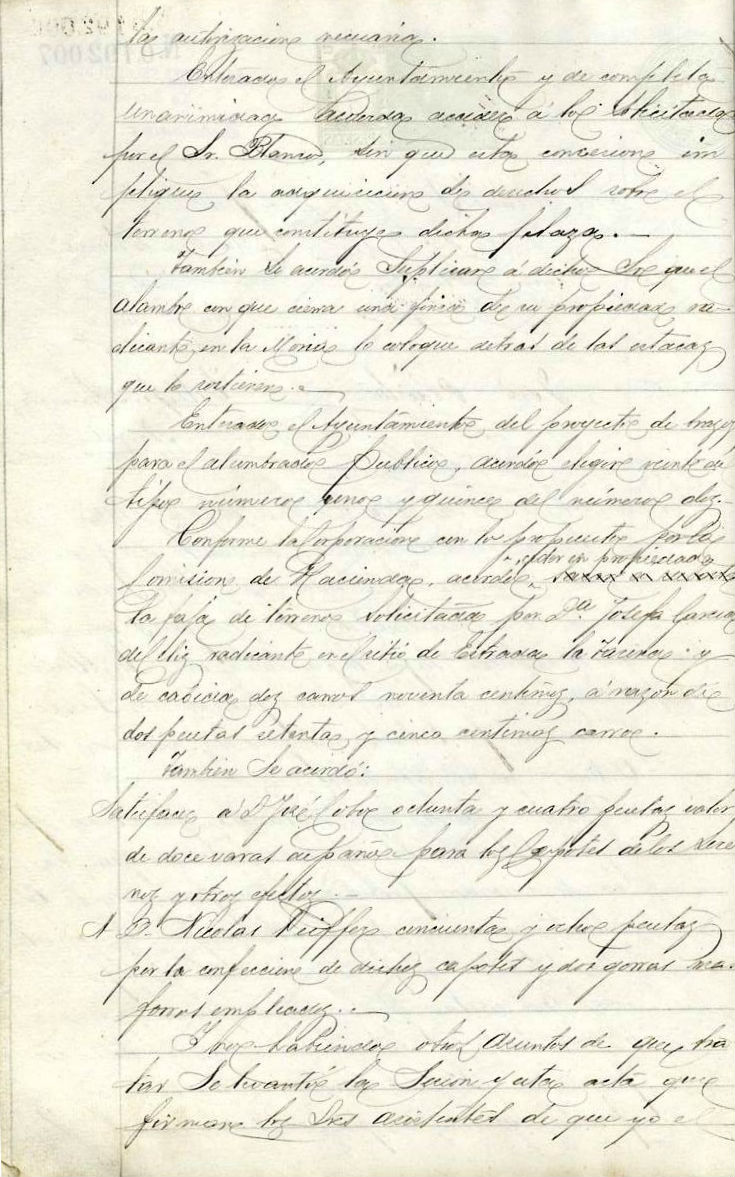 la autorizacion necesaria.
Enterado el Ayuntamiento y de completa
unanimidad acuerda acceder á lo solicitado
por el Sr. Blanco, sin que esta concesione im
plique la adquisicion de derechos sobre el
terreno que constituye dicha plaza.
Tambien se acordó suplicar á dicho Sr que el
alambre con que cierra una finca de su propiedad ra-
dicante en la Moria lo coloque detras de las estacas
que lo sostienen.
Enterado el Ayuntamiento del proyecto de
para el alumbrado publico, acordó elegir veinte del
tipo número uno y quince del número dos.
Conforme la Corporacion con lo propuesto por la
Comision de Hacienda, acordó, ceder en propiedad
la faja de terreno solicitada por Dª. Josefa Garcia
del radicante en el sitio de Estrada la y
de cabida dos carros noventa centimos, á razon de
dos pesetas setenta y cinco centimos carro.
Tambien se acordó:
Satisfacer á D. José Cobo ochenta y cuatro pesetas valor
de doce varas de paño para los capotes de los sere
nos y otros efectos.
A D. Nicolas cincuenta y ocho pesetas
por la confeccion de dichos capotes y dos gorras mas
forros empleados.
Y no habiendo otros asuntos de que tra
tar se levantó la sesion y esta acta que
firman los Sres asistentes de que yo el